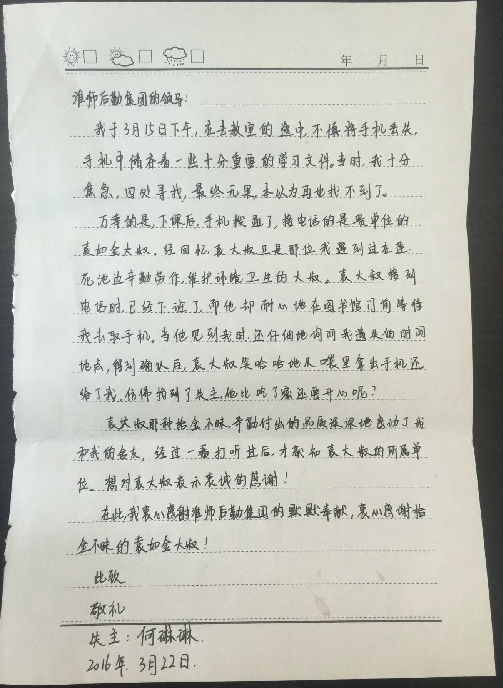 年 月 日
淮师后勤集团的领导：
我于3月15日下午，在去教室的途中，不慎将手机丢失，
手机中储存着一些十分重要的学习文件。当时，我十分
焦急，四处寻找，最终无果，本以为再也找不到了。
万幸的是，下课后，手机拨通了，接电话的是贵单位的
袁如金大叔，经回忆，袁大叔正是那位我遇到过在莲
花池边辛勤劳作，维护环境卫生的大叔。袁大叔接到
电话时已经下班了，即他却耐心地在图书馆门前等待
我去取手机，当他见到我时，还仔细地询问我遗失的时间
地点，得到确认后，袁大叔笑哈哈地从口袋里拿出手机还
给了我，仿佛找到了失主，他比吃了蜜还要开心呢？
袁大叔那种拾金不昧、辛勤付出的品质深深地感动了我
和我的室友，经过一番打听过后，才得知袁大叔的所属单
位。想对袁大叔表示衷诚的感谢！
在此，我衷心感谢淮师后勤集团的默默奉献，衷心感谢拾
金不昧的袁如金大叔！
此致
敬礼
失主：何琳琳
2016年 3月22日.